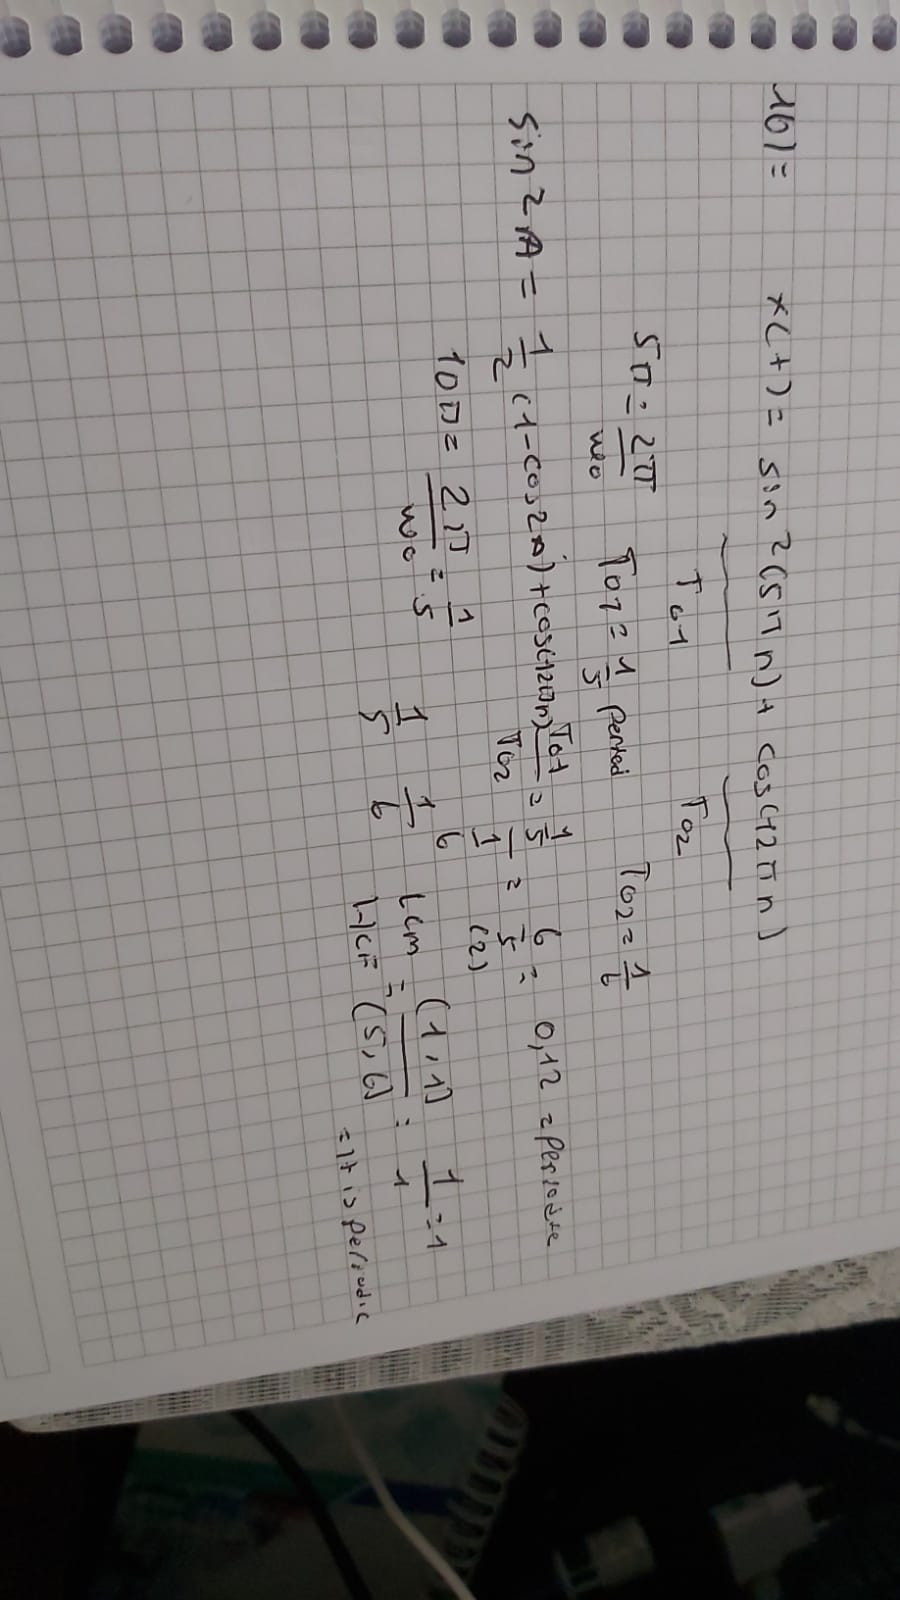 1b)= x(t)= sin²(5πn)+ cos(12πn)
T01 T02
5π= 2π/w0 T01= 1/5 period T02= 1/6
sin²A= 1/2 (1-cos2A)+cos(12πn) T01/T02 = 1/5 / 1/6 = 6/5 = 0,12 = periodic
(2)
10π= 2π/w0 = 1/5
1/5 1/6 LCM/HCF = (1,1)/(5,6) = 1/1 =1
=It is periodic